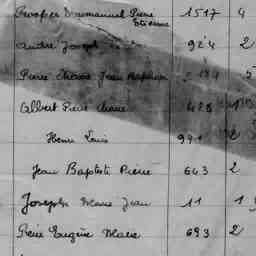 Emmanuel Pierre 1517 4
Etienne
André Joseph 924 2
Pierre Marie Jean Baptiste 2184 5
Albert Pierre Marie 428
Henri Louis 991
Jean Baptiste Pierre 643 2
Joseph Marie Jean 11 1
Pierre Eugène Marie 693 2